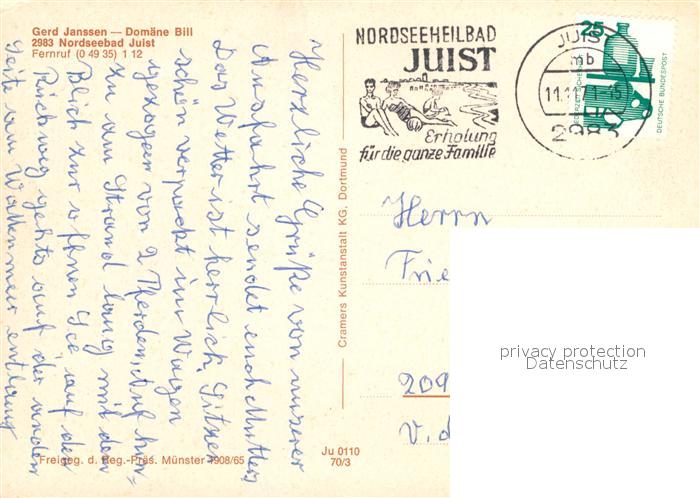 Gerd Janssen — Domäne Bill
2983 Nordseebad Juist
Fernruf (0 49 35) 1 12
Herzliche Grüße von unserer
Ausfahrt sendet euch Mutter,
Das Wetter ist herrlich, Sitzen
schön verpackt im Wagen
gezogen von 2 Pferden, Auf hin-
zu am Strand lang mit dem
Blick zur offnen See, auf dem
Rückweg gehts auf der andern
Seite am Wattenmeer entlang
Freigeg. d. Reg.-Präs. Münster 1908/65
Ju 0110
70/3
Cramers Kunstanstalt KG. Dortmund
NORDSEEHEILBAD
JUIST
Erholung
für die ganze Familie
JUIST
mb
2983
25
DEUTSCHE BUNDESPOST
Herrn
Frie
209
V. d.
privacy protection
Datenschutz